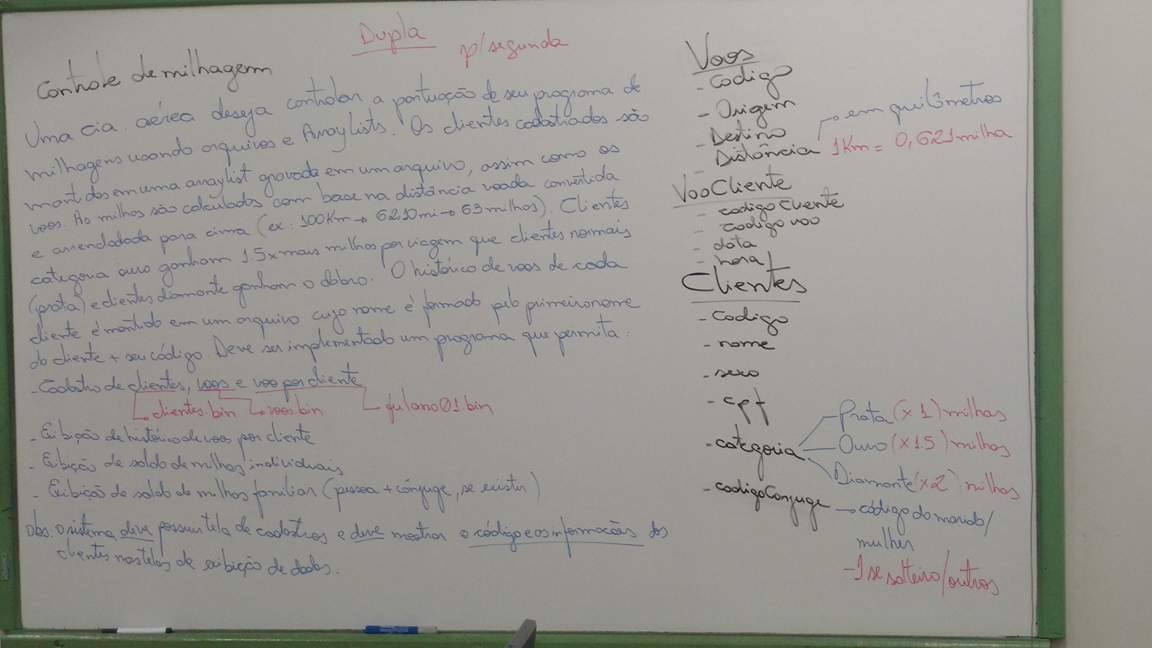 Dupla
p/segunda
Controle de milhagem
Uma cia. aérea deseja controlar a pontuação de seu programa de
milhagens usando arquivos e ArrayLists. Os clientes cadastrados são
mantidos em uma arraylist gravada em um arquivo, assim como os
voos. As milhas são calculadas com base na distância voada convertida
e arrendodada para cima (ex: 100Km → 62,10mi → 63 milhas). Clientes
categoria ouro ganham 1.5x mais milhas por viagem que clientes normais
(prata) e clientes diamante ganham o dobro. O histórico de voos de cada
cliente é mantido em um arquivo cujo nome é formado pelo primeiro nome
do cliente + seu código. Deve ser implementado um programa que permita:
- Cadastro de clientes, voos e voo por cliente
clientes.bin voos.bin fulano01.bin
- Exibição de histórico de voos por cliente
- Exibição de saldo de milhas individuais
- Exibição de saldo de milhas familiar (pessoa + cônjuge, se existir)
Obs. O sistema deve possuir tela de cadastros e deve mostrar o código e as informações dos
clientes nas telas de exibição de dados.
Voos
- Codigo
- Origem
- Destino
- Distância
em quilômetros
1Km = 0,621 milha
VooCliente
- codigoCliente
- codigo voo
- data
- hora
Clientes
- Codigo
- nome
- sexo
- cpf
- categoria
Prata (x1) milhas
Ouro (x1.5) milhas
Diamante (x2) milhas
- codigoConjuge → código do marido/
mulher
-1 se solteiro/outros